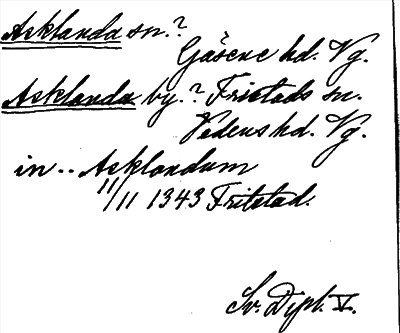 Asklanda sn.?
Gäsene hd. Vg.
Asklanda by.? Fristads sn.
Vedens hd. Vg.
in .. Asklandum
11/11 1343 Fritstad.
Sv. Dipl. V.